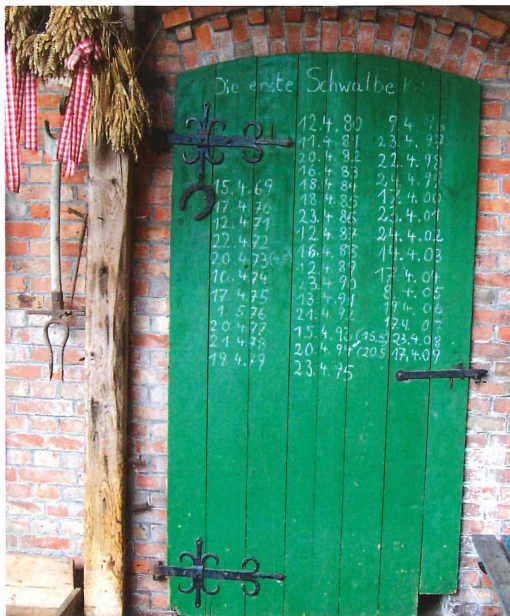 Die erste Schwalbe
15.4.69
17.4.70
12.4.71
22.4.72
20.4.73(4.5)
10.4.74
17.4.75
1.5.76
20.4.77
21.4.78
19.4.79
12.4.80
11.4.81
20.4.82
16.4.83
18.4.84
18.4.85
23.4.86
12.4.87
16.4.88
12.4.89
23.4.90
13.4.91
21.4.92
15.4.93 (15.5)
20.4.94 (20.5
23.4.75
9.4.96
23.4.97
22.4.98
17.4.00
23.4.01
24.4.02
14.4.03
17.4.04
8.4.05
19.4.06
17.4.07
23.4.08
17.4.09